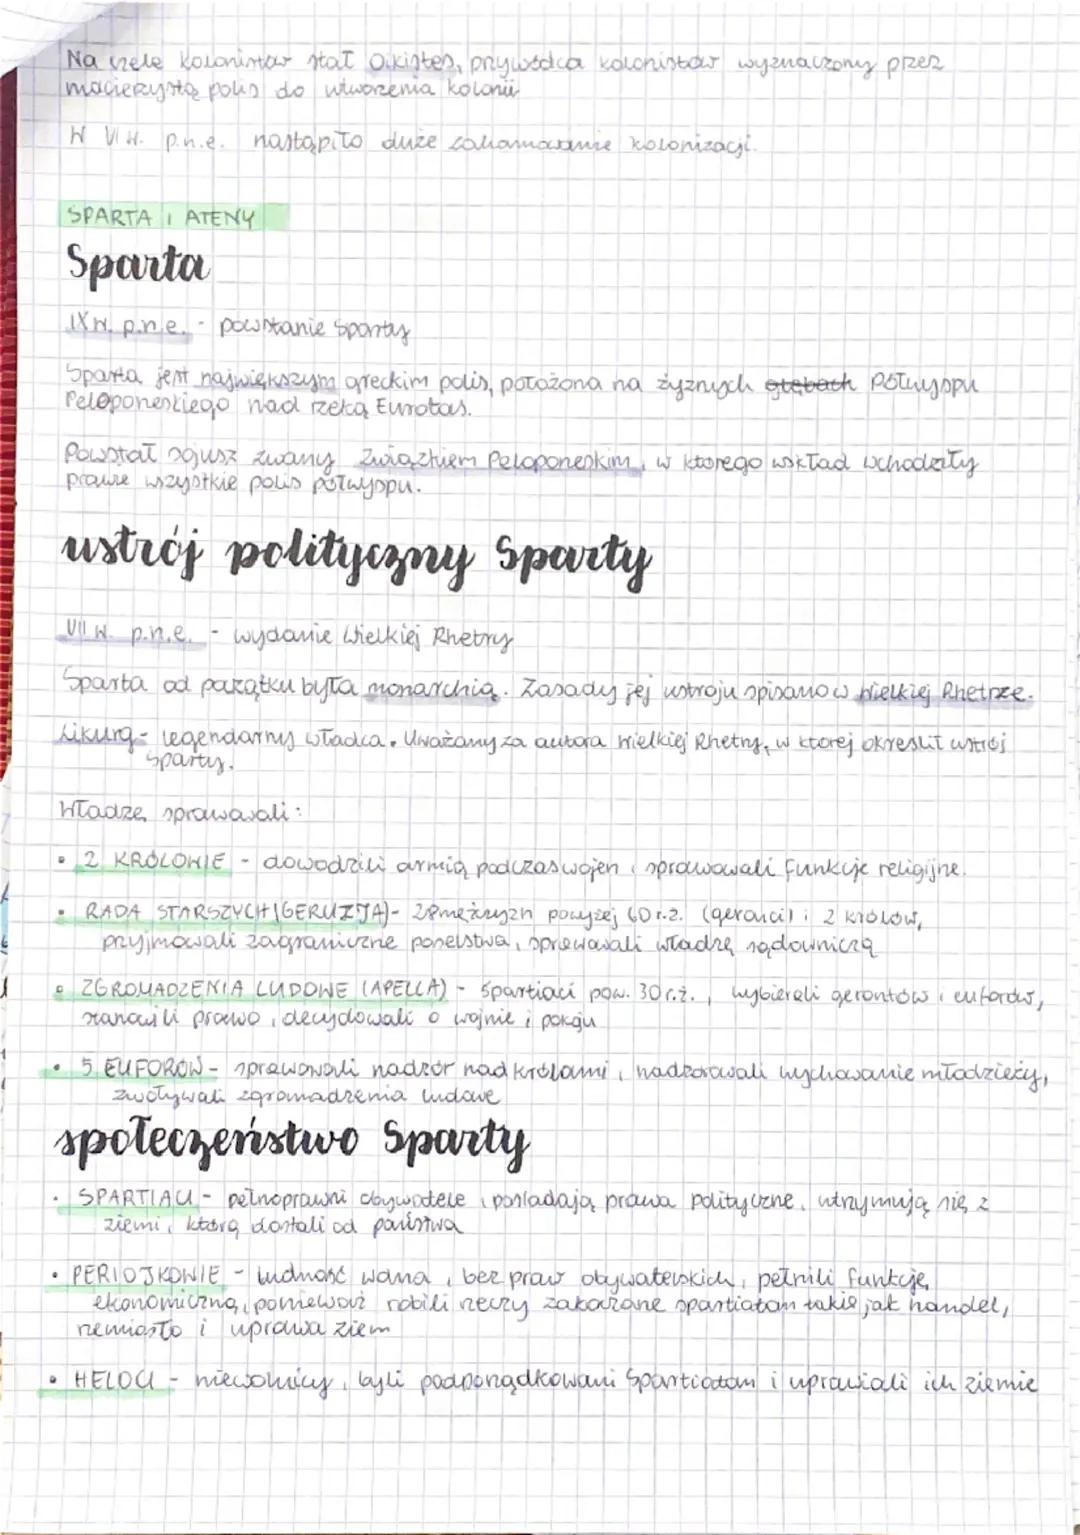 Na czele kolonistów stał Oikistes, przywódca kolonistów wyznaczony przez
macierzystą polis do utworzenia kolonii
W VI w. p.n.e. nastąpiło duże zahamowanie kolonizacji.
SPARTA I ATENY
Sparta
IX w. p.n.e. - powstanie Sparty
Sparta jest największym greckim polis, położona na żyznych glebach Półwyspu
Peloponeskiego nad rzeką Eurotas.
Powstał sojusz zwany Związkiem Peloponeskim, w którego wskład wchodziły
prawie wszystkie polis półwyspu.
ustrój polityczny Sparty
VII w. p.n.e. - wydanie Wielkiej Rhetry
Sparta od początku była monarchią. Zasady jej ustroju spisano w Wielkiej Rhetrze.
Likurg - legendarny władca. Uważany za autora Wielkiej Rhetry, w której określił ustrój
Sparty.
Władzę sprawowali:
• 2 KRÓLOWIE - dowodzili armią podczas wojen, sprawowali funkcje religijne.
• RADA STARSZYCH (GERUZJA) - 28 mężczyzn powyżej 60 r.ż. (geronci) i 2 królów,
przyjmowali zagraniczne poselstwa, sprawowali władzę sądowniczą
• ZGROMADZENIA LUDOWE (APELLA) - Spartiaci pow. 30 r.ż., wybierali gerontów i euforów,
stanowili prawo, decydowali o wojnie i pokoju
• 5 EUFORÓW - sprawowali nadzór nad królami, nadzorowali wychowanie młodzieży,
zwoływali zgromadzenia ludowe
społeczeństwo Sparty
• SPARTIACI - pełnoprawni obywatele, posiadają prawa polityczne, utrzymują się z
ziemi, którą dostali od państwa
• PERIOJKOWIE - ludność wolna, bez praw obywatelskich, pełnili funkcję
ekonomiczną, ponieważ robili rzeczy zakazane spartiatom takie jak handel,
rzemiosło i uprawa ziem
• HELOCI - niewolnicy, byli podporządkowani Spartiatom i uprawiali ich ziemie